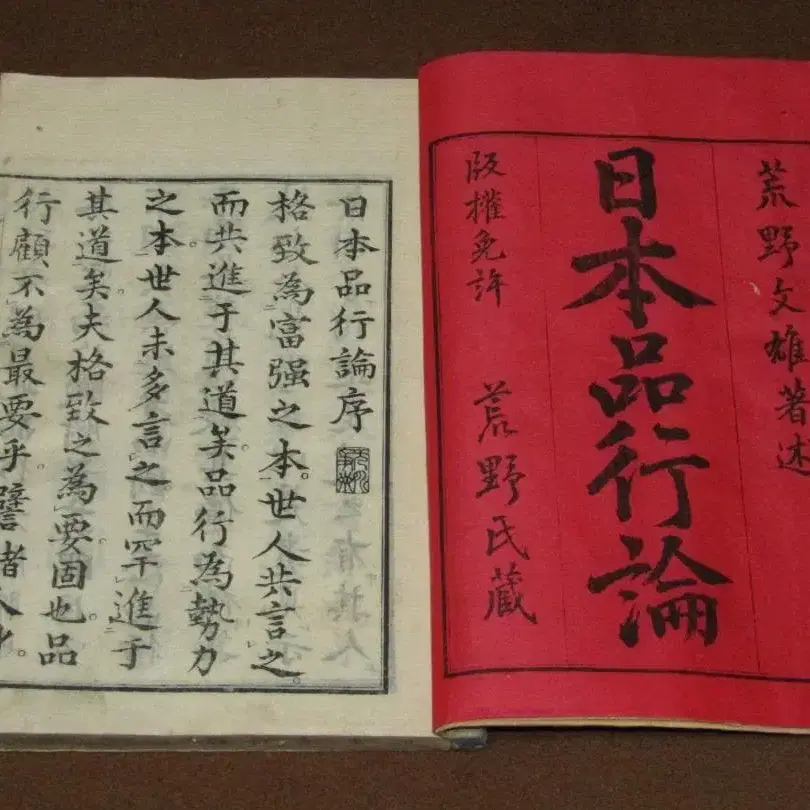 荒野文雄著述
日本品行論
版權免許 荒野氏藏
日本品行論序
格致為富强之本。世人共言之
而共進于其道矣。品行為勢力
之本。世人未多言之而罕進于
其道矣。夫格致之為要固也。品
行顧不為最要乎。譬者